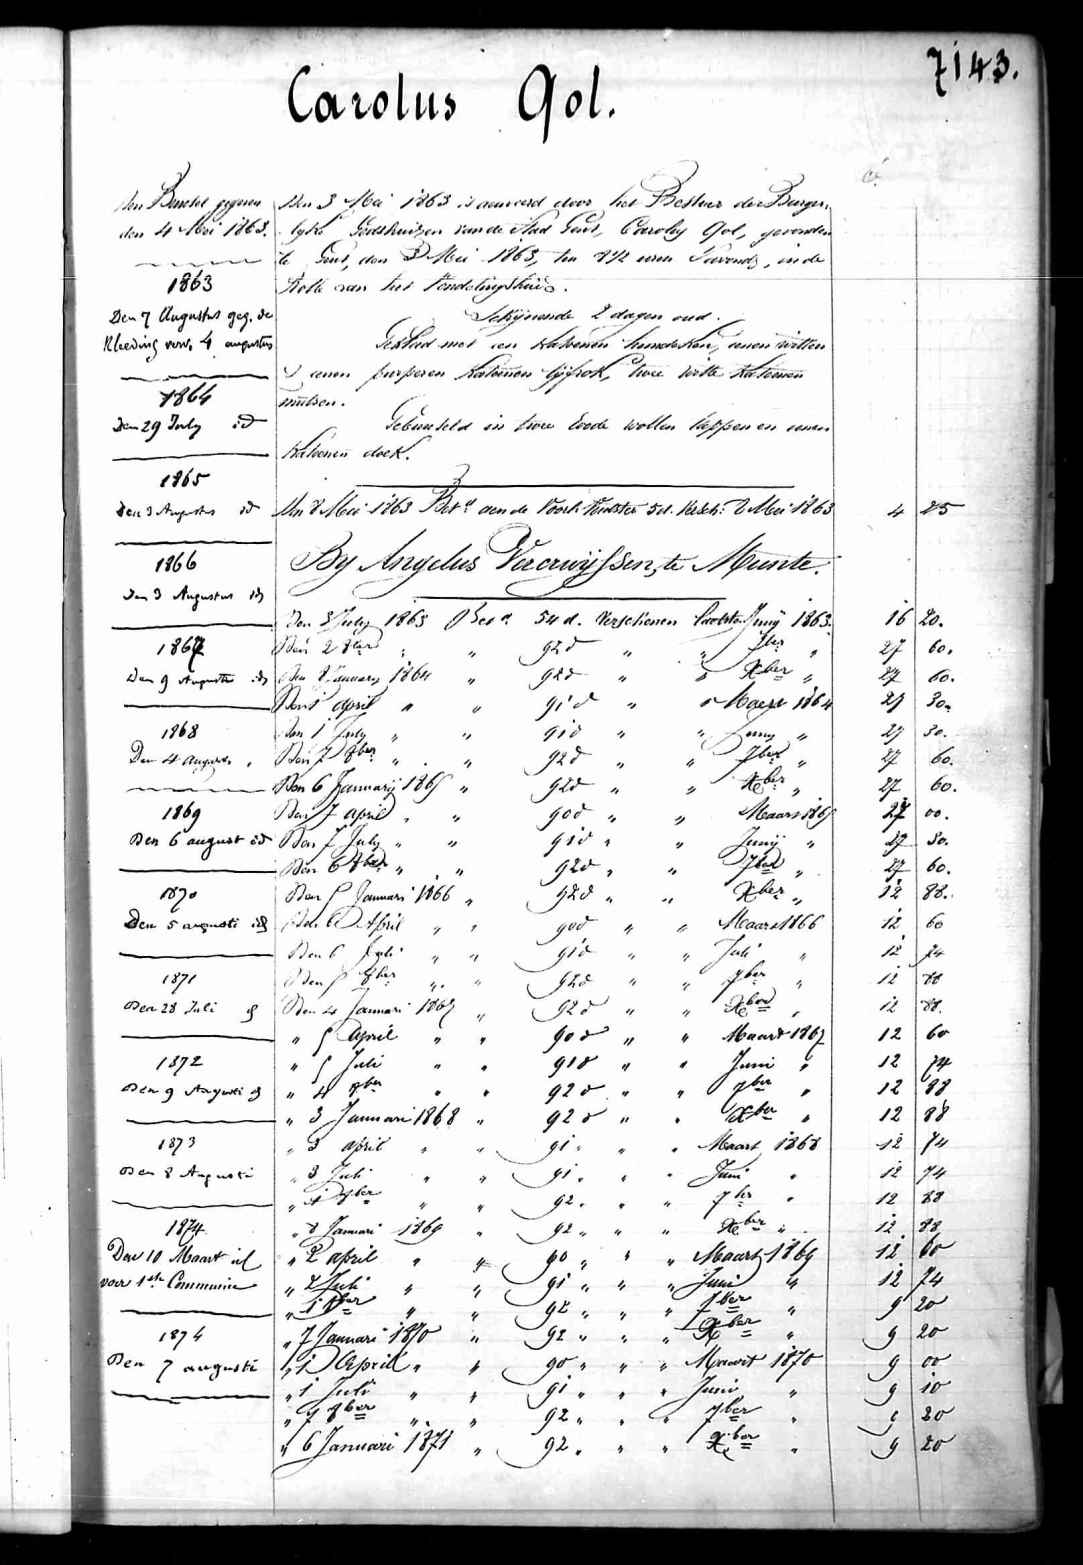 7143.
Carolus Qol.
den Borstel gegeven
den 4 Mei 1863.
1863
Den 7 Augustus geg. de
Kleeding verv. 4 augustus
1864
Den 29 July id
1865
Den 3 Augustus id
1866
Den 3 Augustus id
1867
Den 9 Augusti id
1868
Den 4 August. "
1869
Den 6 august id
1870
Den 5 augusti id
1871
Den 28 Juli id
1872
Den 9 Augusti id
1873
Den 8 Augusti
1874
Den 10 Maart id
voor 1ste Communie
1874
Den 7 augusti
Den 3 Mei 1863 is aenveerd door het Bestuer der Burger-
lyke Godshuizen van de Stad Gent, Carolus Qol, gevonden
te Gent, den 3 Mei 1863, ten 8 1/2 uren 's avonds, in de
Rolle van het Vondelingshuis.
Schijnende 2 dagen oud.
Gekleed met een katoenen hemdeken, eenen witten
& eenen purperen katoenen lijfrok, twee witte katoenen
mutsen.
Gebusseld in twee roode wollen lappen en eenen
katoenen doek.
Den 8 Mei 1863 Bet.d aen de Voork. Minster 5 d. Versch. 8 Mei 1863 4 25
By Angelus Vercruÿssen, te Munte.
Den 8 July 1863 Bet.d 54 d. Verschenen laatsten Juny 1863. 16 20.
Den 2 8ber " " 92 d " " 7ber " 27 60.
Den 8 January 1864 " 92 d " " Xber " 27 60.
Den 1 april " " 91 d " " Maert 1864 27 30.
Den 1 July " " 91 d " " Juny " 27 30.
Den 7 8ber " " 92 d " " 7ber " 27 60.
Den 6 Januarij 1865 " 92 d " " Xber " 27 60.
Den 7 april " " 90 d " " Maart 1865 27 00.
Den 7 July " " 91 d " " Junij " 27 30.
Den 6 8ber " " 92 d " " 7ber " 27 60.
Den 5 Januari 1866 " 92 d " " Xber " 12 88.
Den 6 April " " 90 d " " Maart 1866 12 60
Den 6 Juli " " 91 d " " Juli " 12 74
Den 5 8ber " " 92 d " " 7ber " 12 88
Den 4 Januari 1867 " 92 d " " Xber " 12 88.
" 5 April " " 90 d " " Maart 1867 12 60
" 5 Juli " " 91 d " " Juni " 12 74
" 4 8ber " " 92 d " " 7ber " 12 88
" 3 Januari 1868 " 92 d " " Xber " 12 88
" 3 april " " 91 " " " Maart 1868 12 74
" 3 Juli " " 91 " " " Juni " 12 74
" 1 8ber " " 92 " " " 7ber " 12 88
" 8 Januari 1869 " 92 " " " Xber " 12 88
" 2 april " " 90 " " " Maart 1869 12 60
" 2 Juli " " 91 " " " Juni " 12 74
" 1 8ber " " 92 " " " 7ber " 9 20
" 7 Januari 1870 " 92 " " " Xber " 9 20
" 1 April " " 90 " " " Maart 1870 9 00
" 1 Juli " " 91 " " " Juni " 9 10
" 7 8ber " " 92 " " " 7ber " 9 20
" 6 Januari 1871 " 92 " " " Xber " 9 20